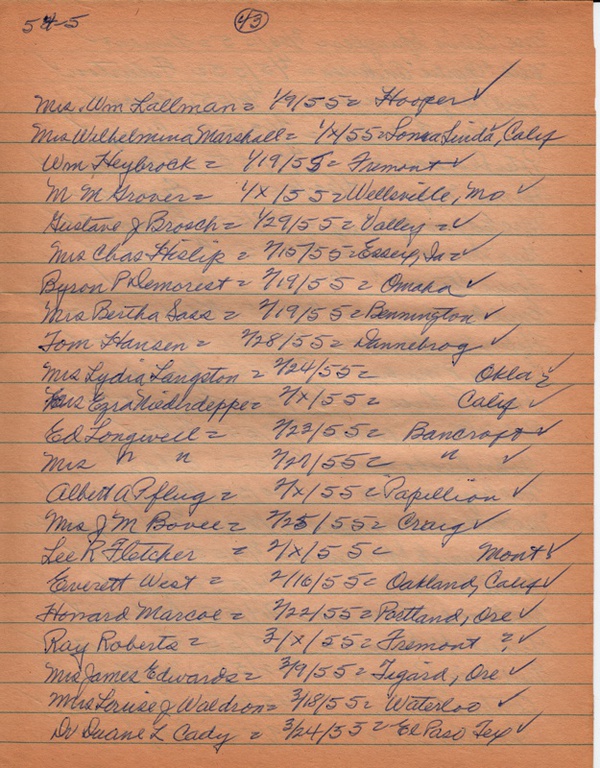 54-5 43
Mrs. Wm Lallman = 1/9/55 = Hooper ✓
Mrs Wilhelmina Marshall = 1/x/55 = Loma Linda, Calif
Wm Heybrock = 1/19/55 = Fremont ✓
M M Grover = 1/x/55 = Wellsville, Mo ✓
Gustave J Brosch = 1/29/55 = Valley = ✓
Mrs Chas Hislip = 2/15/55 = Essex, Ia = ✓
Byron P Demorest = 2/19/55 = Omaha ✓
Mrs Bertha Sass = 2/19/55 = Bennington ✓
Tom Hansen = 2/28/55 = Dannebrog ✓
Mrs Lydia Langston = 2/24/55 = Okla ✓
Mrs Ezra Niederdeppe = 2/x/55 = Calif ✓
Ed Longwell = 2/23/55 = Bancroft ✓
Mrs " " 2/27/55 = " ✓
Albert A Pflug = 2/x/55 = Papillion ✓
Mrs J M Bovee = 2/25/55 = Craig ✓
Lee R Fletcher = 2/x/55 = Mont ✓
Everett West = 2/16/55 = Oakland, Calif ✓
Howard Marcoe = 2/22/55 = Portland, Ore ✓
Ray Roberts = 3/x/55 = Fremont ? ✓
Mrs James Edwards = 3/9/55 = Tigard, Ore ✓
Mrs Louise J Waldron = 3/18/55 = Waterloo ✓
Dr Duane L Cady = 3/24/55 = El Paso Tex ✓